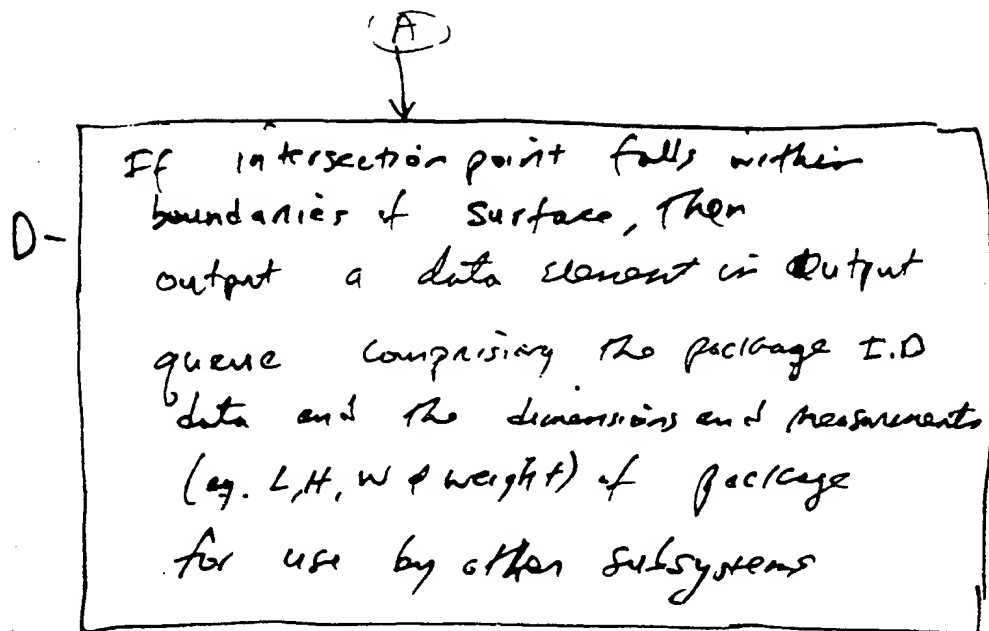 A
If intersection point falls within
D- boundaries of surface, Then
output a data element in Output
queue comprising the package I.D
data and the dimensions and measurments
(eg. L, H, W & weight) of package
for use by other subsystems